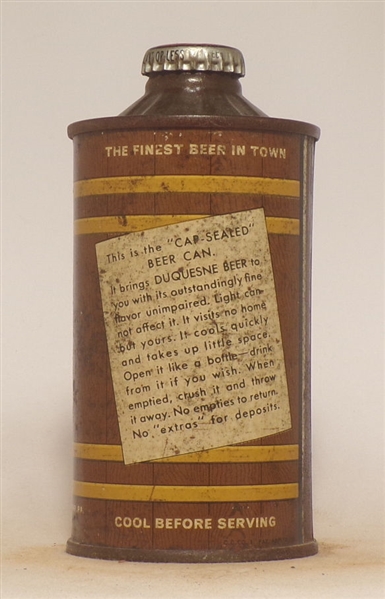 OR LESS
THE FINEST BEER IN TOWN
This is the "CAP-SEALED"
BEER CAN.
It brings DUQUESNE BEER to
you with its outstandingly fine
flavor unimpaired. Light can
not affect it. It visits no home
but yours. It cools quickly
and takes up little space.
Open it like a bottle—drink
from it if you wish. When
emptied, crush it and throw
it away. No empties to return.
No "extras" for deposits.
COOL BEFORE SERVING